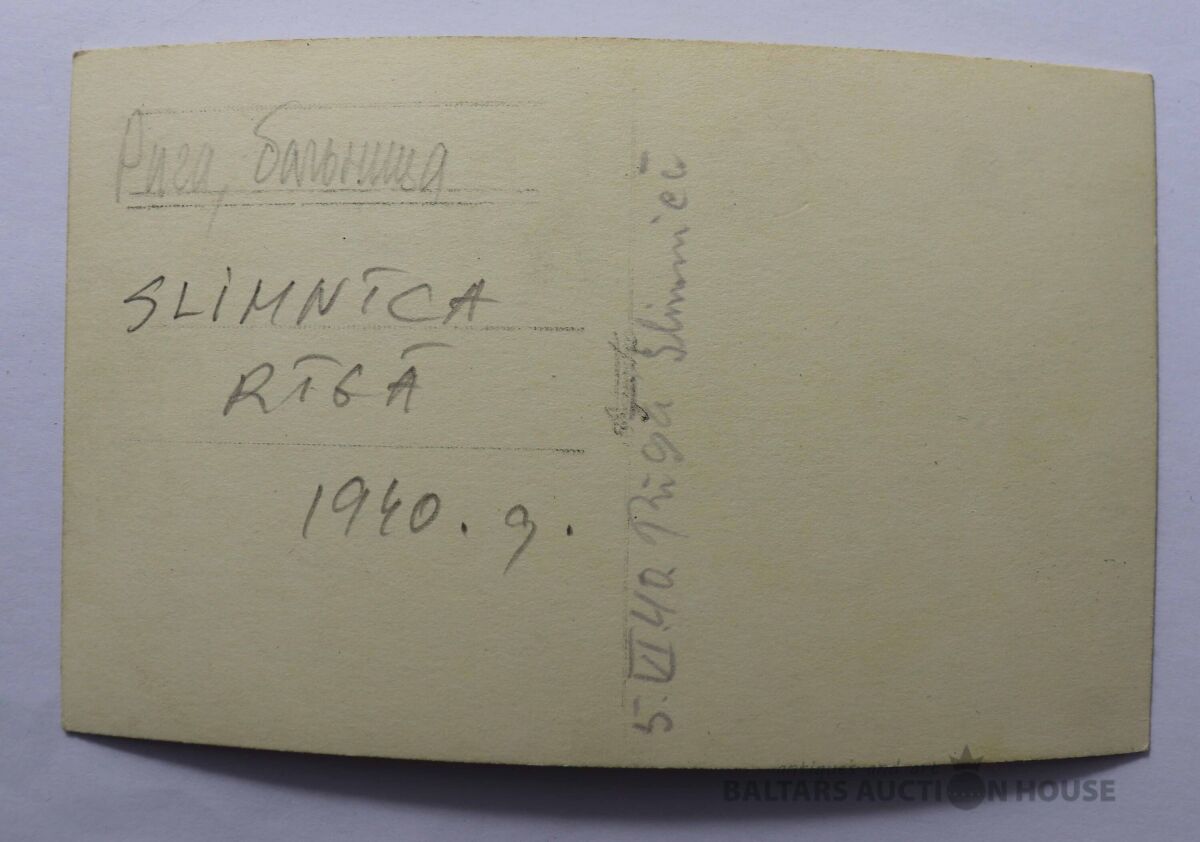 Рига, больница
SLIMNĪCA
RĪGĀ
1940. g.
5.VI.40 Rīgā Slimnīcā
antiques and art
BALTARS AUCTION HOUSE